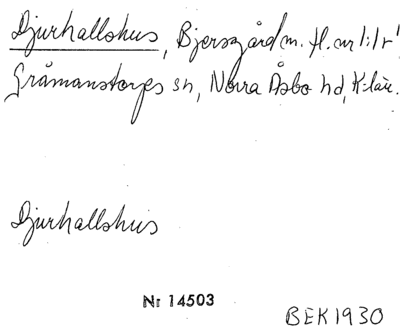 Djurhallshus, Bjersgård m. fl. nr 1:1 r'
Gråmanstorps sn, Norra Åsbo hd, K-län.
Djurhallshus
Nr 14503
BEK 1930